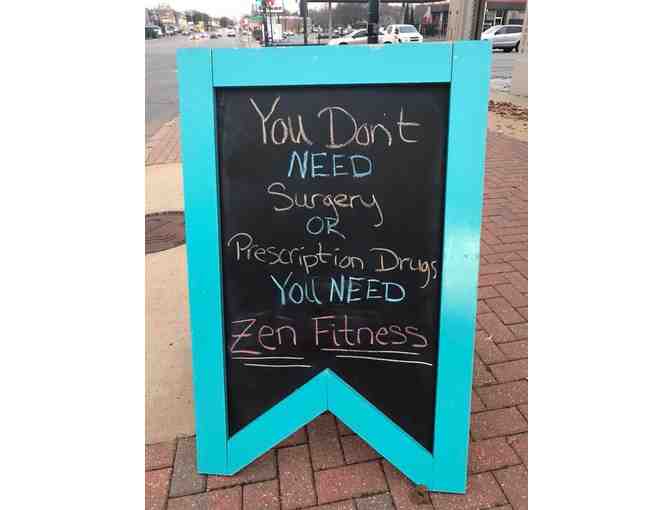 You Don't
NEED
Surgery
OR
Prescription Drugs
YOU NEED
Zen Fitness